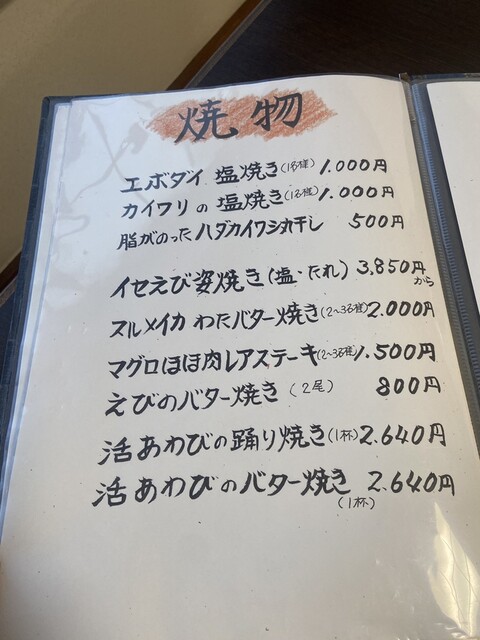 焼物
エボダイ 塩焼き(1名様) 1.000円
カイワリの塩焼き(1名様) 1.000円
脂がのったハダカイワシ丸干し 500円
イセえび姿焼き(塩・たれ) 3.850円から
スルメイカ わたバター焼き(2~3名様) 2.000円
マグロほほ肉レアステーキ(2~3名様) 1.500円
えびのバター焼き (2尾) 800円
活あわびの踊り焼き(1杯) 2.640円
活あわびのバター焼き 2.640円
(1杯)